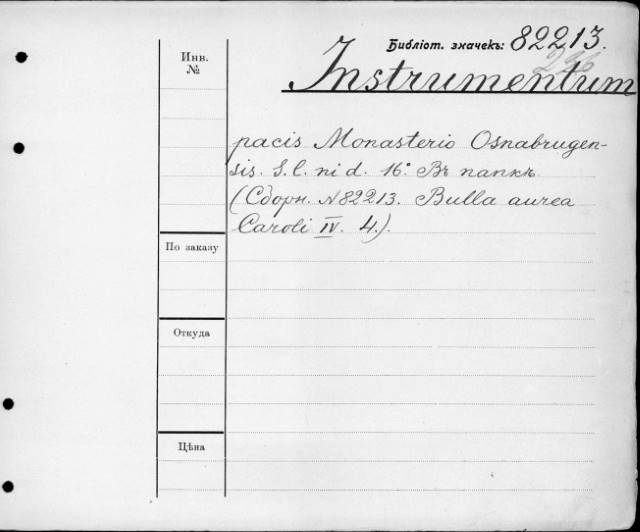 Библіот. значекъ: 82213.
Instrumentum
Инв.
№
pacis Monasterio Osnabrugen-
sis. S. l. ni d. 16°. Въ папкѣ
(Сборн. №82213. Bulla aurea
Caroli IV. 4.).
По заказу
Откуда
Цѣна